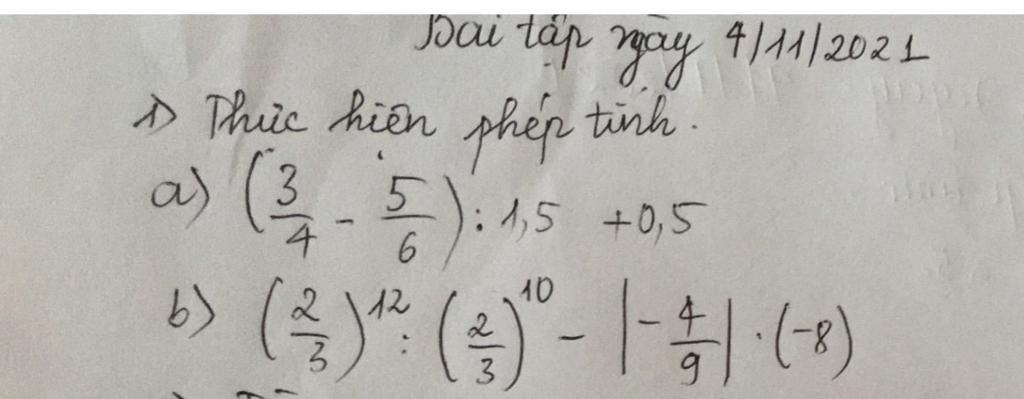 Bài tập ngày 4/11/2021
1) Thực hiện phép tính.
a) (3/4 - 5/6) : 1,5 + 0,5
b) (2/3)^12 : (2/3)^10 - |-4/9| . (-8)